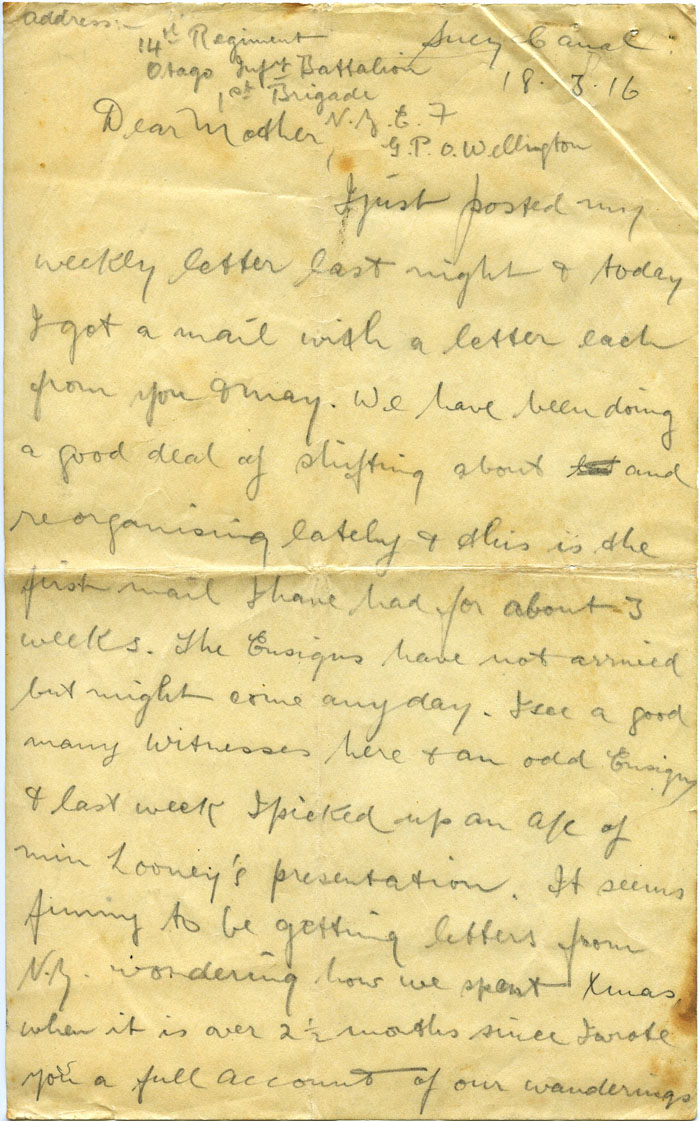 address:-
14th Regiment
Otago Infy Battalion
1st Brigade
N.Z.E.F
G.P.O. Wellington
Suez Canal
18.3.16
Dear Mother,
I just posted my
weekly letter last night & today
I got a mail with a letter each
from you & May. We have been doing
a good deal of shifting about and
reorganising lately & this is the
first mail I have had for about 3
weeks. The Ensigns have not arrived
but might come any day. I see a good
many Witnesses here & an odd Ensign
& last week I picked up an a/c of
Min Looney's presentation. It seems
funny to be getting letters from
N.Z. wondering how we spent Xmas,
when it is over 2½ months since I wrote
you a full account of our wanderings